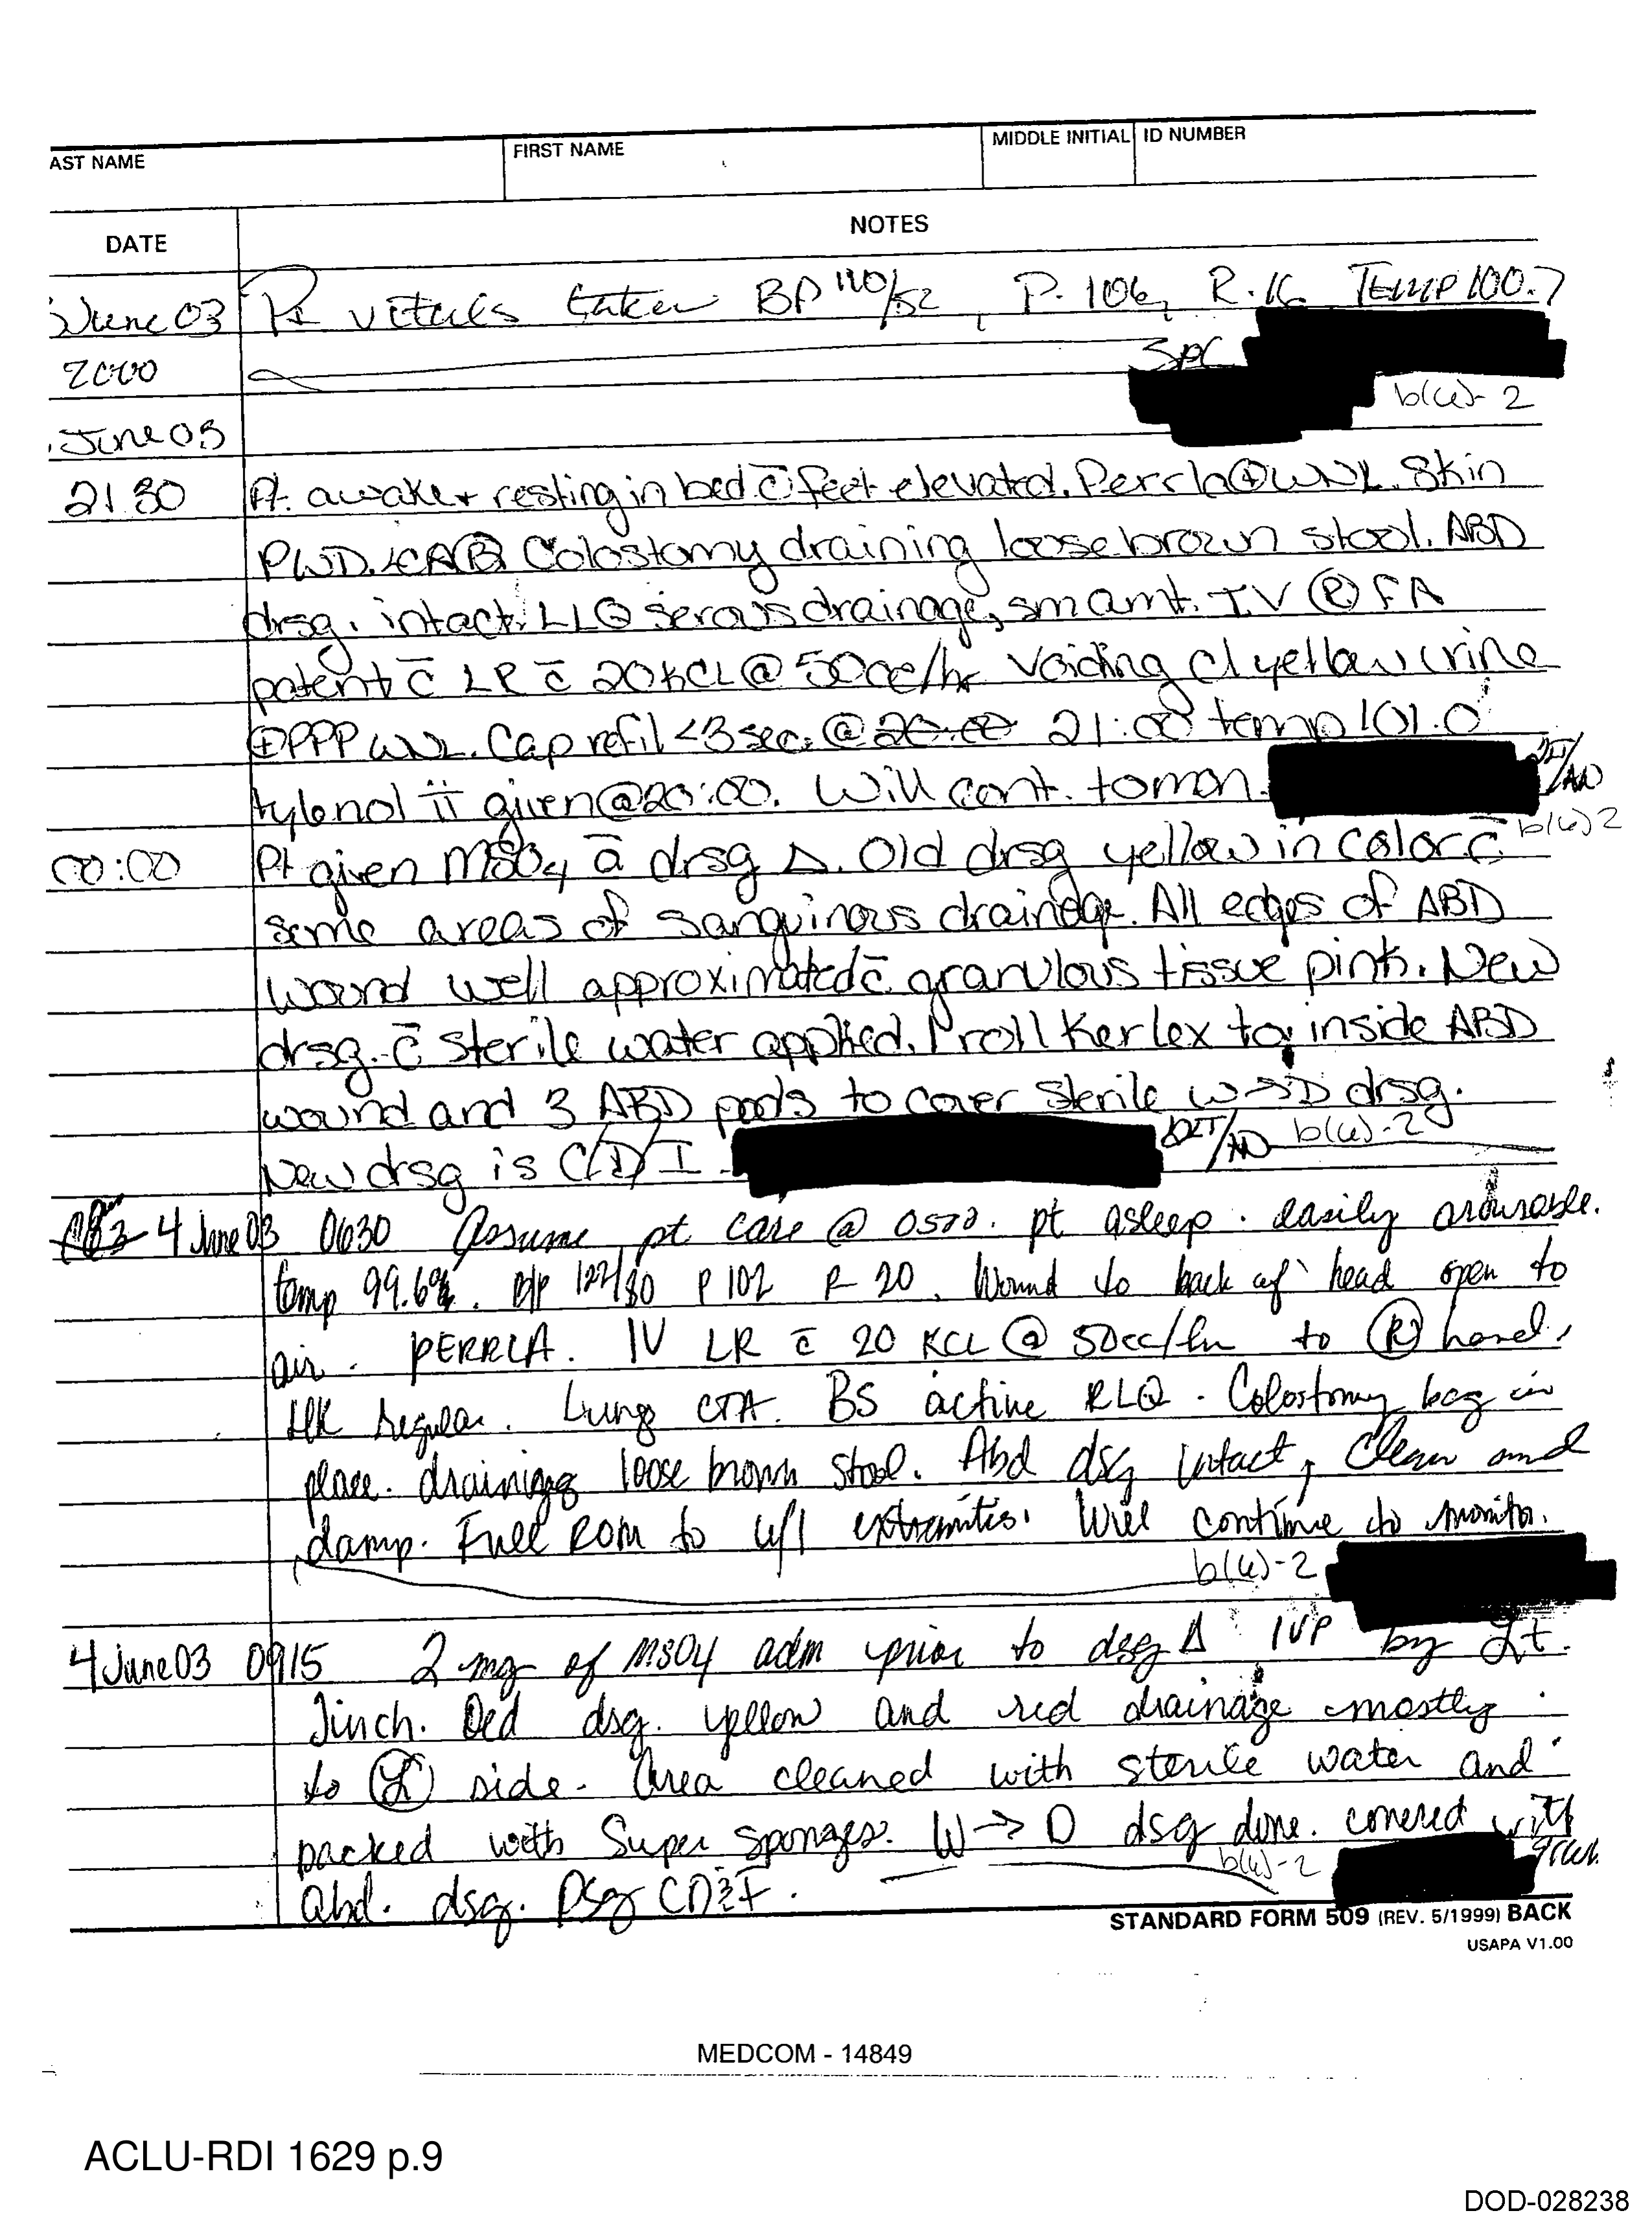 AST NAME FIRST NAME MIDDLE INITIAL ID NUMBER
DATE NOTES
June 03 Pt vitals taken BP 110/52, P. 106, R. 16 TEMP 100.7
2000 SPC
b(6)-2
June 03
21 30 Pt. awake + resting in bed c̄ feet elevated. Perrla @ WNL. Skin
PWD. Colostomy draining loose brown stool. ABD
drsg. intact. LLQ serous drainage, sm amt. I.V Ⓡ FA
patent c̄ LR c̄ 20 KCL @ 50cc/hr Voiding cl yellow urine
⊕PPP WNL. Cap refil <3 sec. @ 20:00 21:00 temp 101.0
tylenol ii given @ 20:00. Will cont. to mon.
b(6)2
00:00 Pt given MSO4 ā drsg Δ. Old drsg yellow in color c̄
some areas of sanguinous drainage. All edges of ABD
wound well approximated c̄ granulous tissue pink. New
drsg. c̄ sterile water applied. 1 roll Kerlex to inside ABD
wound and 3 ABD pads to cover sterile W→D drsg.
New drsg is C/D/I b(6)-2
4 June 03 0630 Assume pt care @ 0500. pt asleep. easily arousable.
temp 99.6 B/P 122/80 P 102 R 20. Wound to back of head open to
air. PERRLA. IV LR c̄ 20 KCL @ 50cc/hr to Ⓡ hand,
HR regular. Lungs CTA. BS active RLQ. Colostomy bag in
place. draining loose brown stool. Abd dsg intact, Clean and
damp. Full ROM to u/l extremities. Will continue to monitor.
b(6)-2
4 June 03 0915 2 mg of MSO4 adm prior to dsg Δ IVP by Lt.
Jinch. Old dsg. yellow and red drainage mostly
to Ⓛ side. Area cleaned with sterile water and
packed with Super Sponges. W→D dsg done. covered with
b(6)-2
Abd. dsg. Dsg CD&I.
STANDARD FORM 509 (REV. 5/1999) BACK
USAPA V1.00
MEDCOM - 14849
ACLU-RDI 1629 p.9
DOD-028238